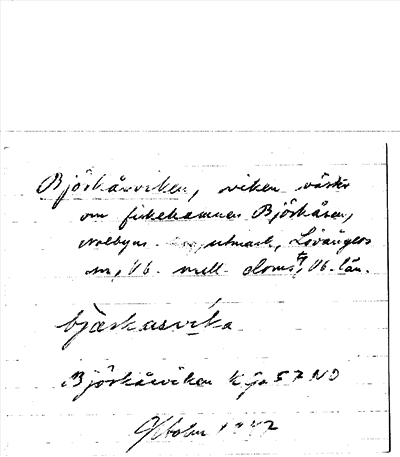 Björkåsviken, viken väster
om fiskehamnen Björkåsen,
utmark, Lövångers
sn, Vb. mell. doms., Vb. län.
bjärkasvíka
Björkåsviken
Oktober